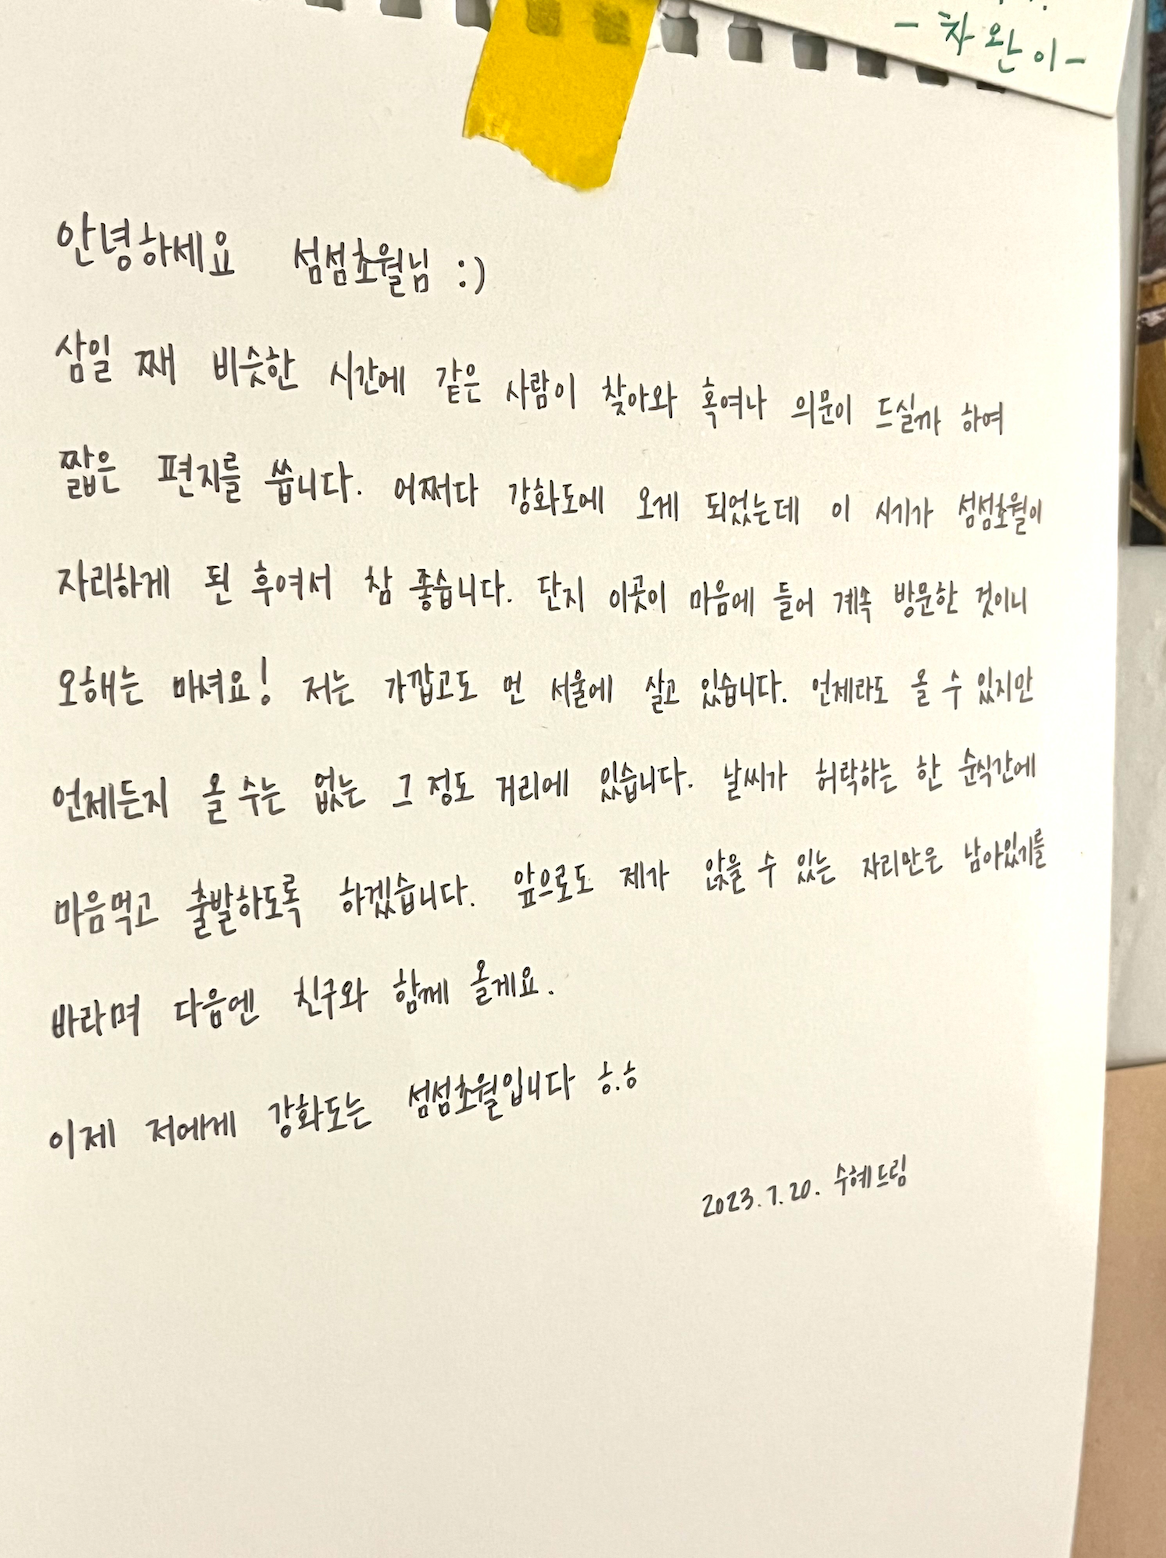 - 차완이 -
안녕하세요 섬섬초월님 :)
삼일 째 비슷한 시간에 같은 사람이 찾아와 혹여나 의문이 드실까 하여
짧은 편지를 씁니다. 어쩌다 강화도에 오게 되었는데 이 시기가 섬섬초월이
자리하게 된 후여서 참 좋습니다. 단지 이곳이 마음에 들어 계속 방문한 것이니
오해는 마셔요! 저는 가깝고도 먼 서울에 살고 있습니다. 언제라도 올 수 있지만
언제든지 올 수는 없는 그 정도 거리에 있습니다. 날씨가 허락하는 한 순식간에
마음먹고 출발하도록 하겠습니다. 앞으로도 제가 앉을 수 있는 자리만은 남아있기를
바라며 다음엔 친구와 함께 올게요.
이제 저에게 강화도는 섬섬초월입니다 ㅎ.ㅎ
2023.7.20. 수혜드림